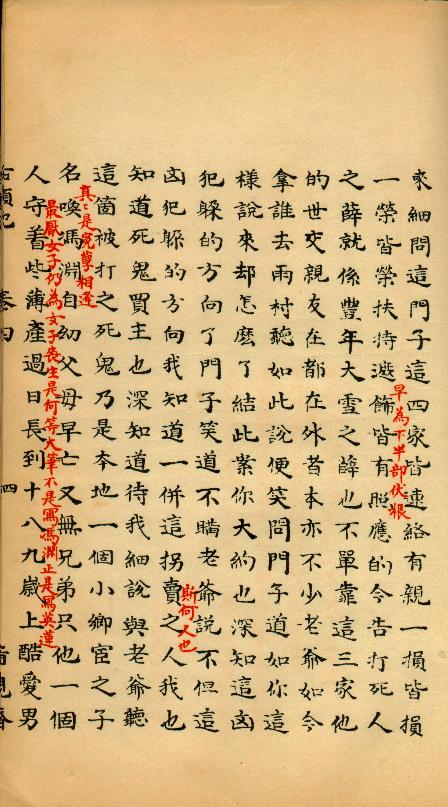 來細問這門子這四家皆連絡有親一損皆損
一榮皆榮扶持遮飾皆有照應的今告打死人
早為下半部伏根
之薛就係豐年大雪之薛也不單靠這三家他
的世交親友在都在外者本亦不少老爺如今
拿誰去雨村聽如此說便笑問門子道如你這
樣說來却怎麽了結此案你大約也深知這凶
犯躲的方向了門子笑道不瞞老爺說不但這
凶犯躲的方向我知道一併這拐賣之人我也
斯何人也
知道死鬼買主也深知道待我細說與老爺聽
這箇被打之死鬼乃是本地一個小鄉宦之子
真〻是冤孽相逢
名喚馮淵自幼父母早亡又無兄弟只他一個
最厭女子仍為女子喪生是何等大筆不是寫馮淵正是寫英蓮
人守着些薄產過日長到十八九歲上酷愛男
卷四 四